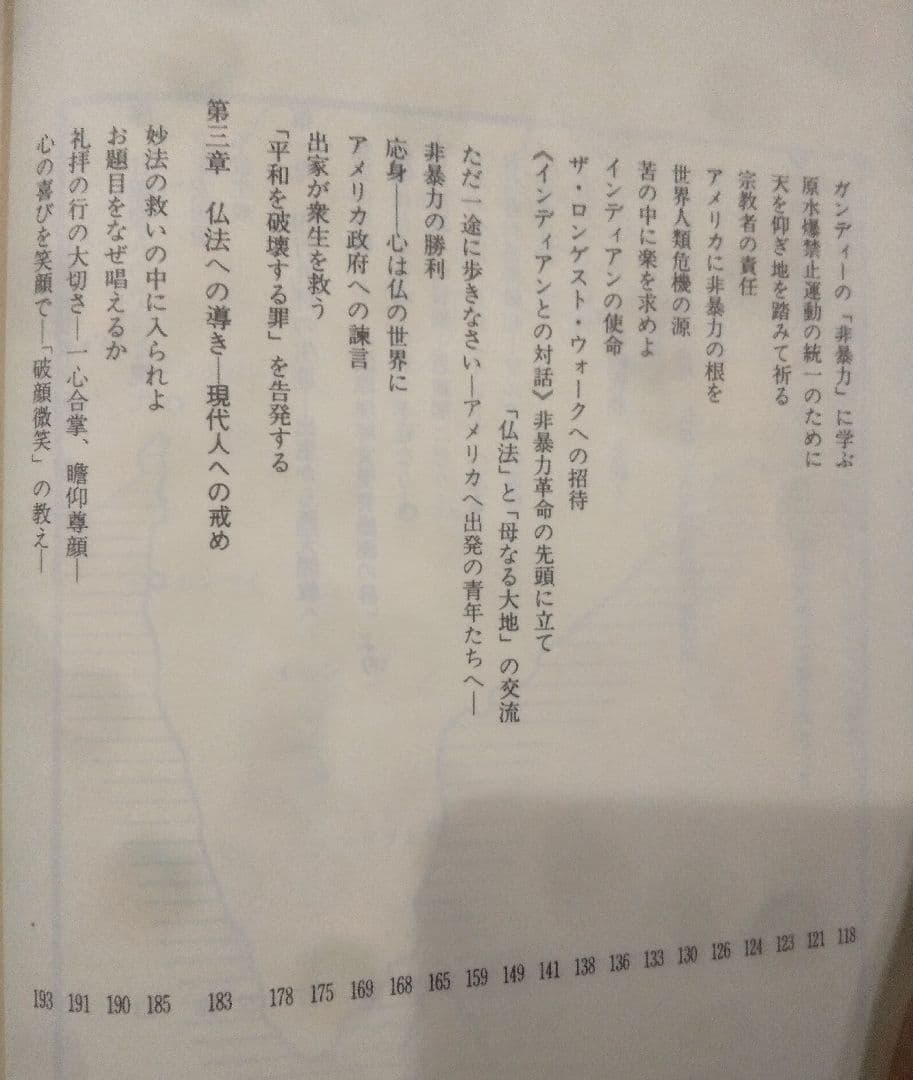 ガンディーの「非暴力」に学ぶ 118
原水爆禁止運動の統一のために 121
天を仰ぎ地を踏みて祈る 123
宗教者の責任 124
アメリカに非暴力の根を 126
世界人類危機の源 130
苦の中に楽を求めよ 133
インディアンの使命 136
ザ・ロンゲスト・ウォークへの招待 138
《インディアンとの対話》非暴力革命の先頭に立て 141
「仏法」と「母なる大地」の交流 149
ただ一途に歩きなさい―アメリカへ出発の青年たちへ― 159
非暴力の勝利 165
応身――心は仏の世界に 168
アメリカ政府への諫言 169
出家が衆生を救う 175
「平和を破壊する罪」を告発する 178
第三章 仏法への導き――現代人への戒め 183
妙法の救いの中に入られよ 185
お題目をなぜ唱えるか 190
礼拝の行の大切さ―一心合掌、瞻仰尊顔― 191
心の喜びを笑顔で―「破顔微笑」の教え― 193